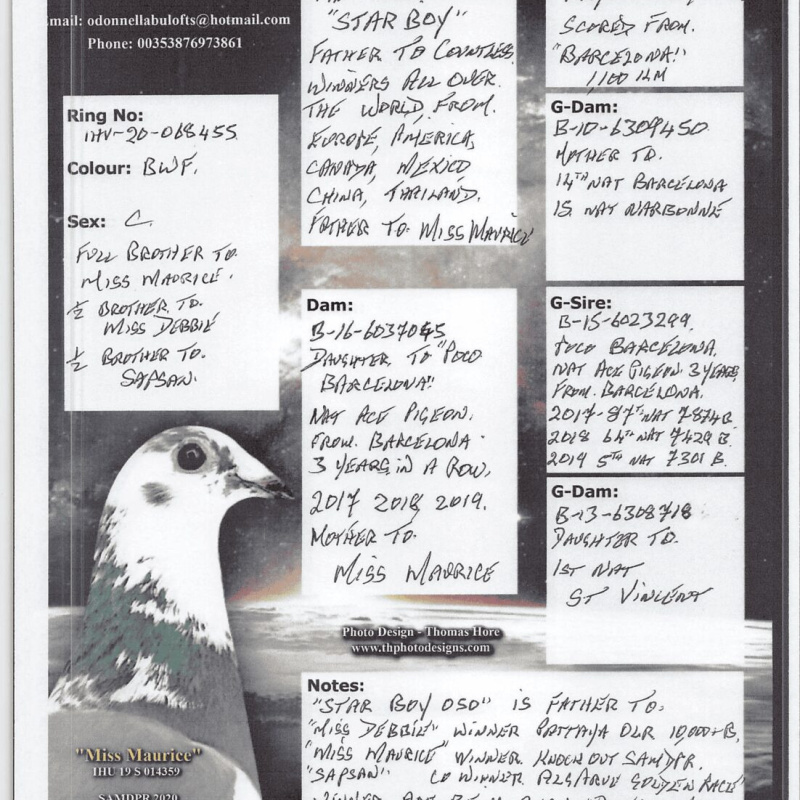 mail: odonnellabulofts@hotmail.com
Phone: 00353876973861
Ring No:
IHU-20-068455
Colour: BWF.
Sex: C.
FULL BROTHER TO
MISS MAURICE.
½ BROTHER TO.
MISS DEBBIE
½ BROTHER TO.
SAPSAN.
"STAR BOY"
FATHER TO COUNTLESS
WINNERS ALL OVER
THE WORLD FROM.
EUROPE, AMERICA,
CANADA, MEXICO
CHINA, THAILAND.
FATHER TO: MISS MAURICE
Dam:
B-16-6037045
DAUGHTER TO "POCO
BARCELONA"
NAT ACE PIGEON.
FROM. BARCELONA
3 YEARS IN A ROW,
2017 2018 2019.
MOTHER TO.
MISS MAURICE
SCORED FROM.
"BARCELONA"
1,100 KM
G-Dam:
B-10-6309450
MOTHER TO.
14TH NAT BARCELONA
15 NAT NARBONNE
G-Sire:
B-15-6023299.
POCO BARCELONA.
NAT ACE PIGEON 3 YEARS
FROM. BARCELONA.
2017-87TH NAT 7874B.
2018 64TH NAT 7429 B.
2019 5TH NAT 7301 B.
G-Dam:
B-13-6308718
DAUGHTER TO.
1ST NAT
ST VINCENT
Photo Design - Thomas Hore
www.thphotodesigns.com
"Miss Maurice"
IHU 19 S 014359
SAMDPR 2020
Notes:
"STAR BOY OSO" IS FATHER TO:
"MISS DEBBIE" WINNER PATTAYA OLR 10,000+B,
"MISS MAURICE" WINNER. KNOCK OUT SAMDPR.
"SAPSAN" CO WINNER. ALGARVE GOLDEN RACE